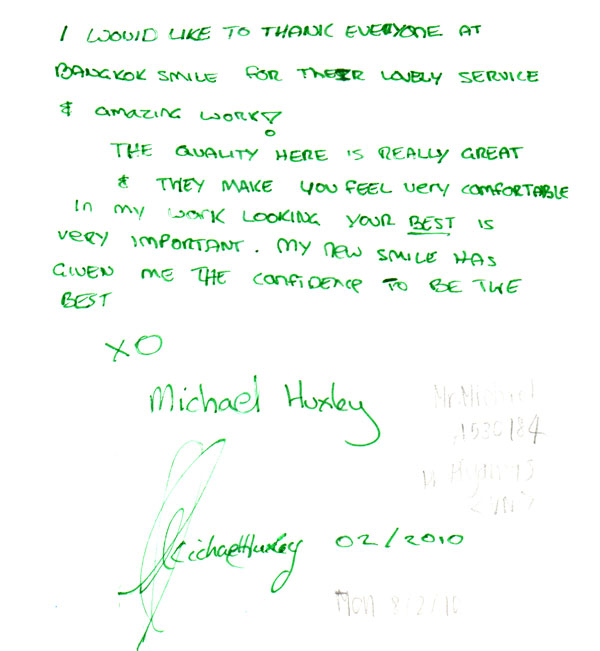 I WOULD LIKE TO THANK EVERYONE AT
BANGKOK SMILE FOR THEIR LOVELY SERVICE
& AMAZING WORK!
THE QUALITY HERE IS REALLY GREAT
& THEY MAKE YOU FEEL VERY COMFORTABLE
IN MY WORK LOOKING YOUR BEST IS
VERY IMPORTANT. MY NEW SMILE HAS
GIVEN ME THE CONFIDENCE TO BE THE
BEST
XO
Michael Huxley
Mr. Michael
1530184
Michael Huxley 02/2010
Mon 8/2/10